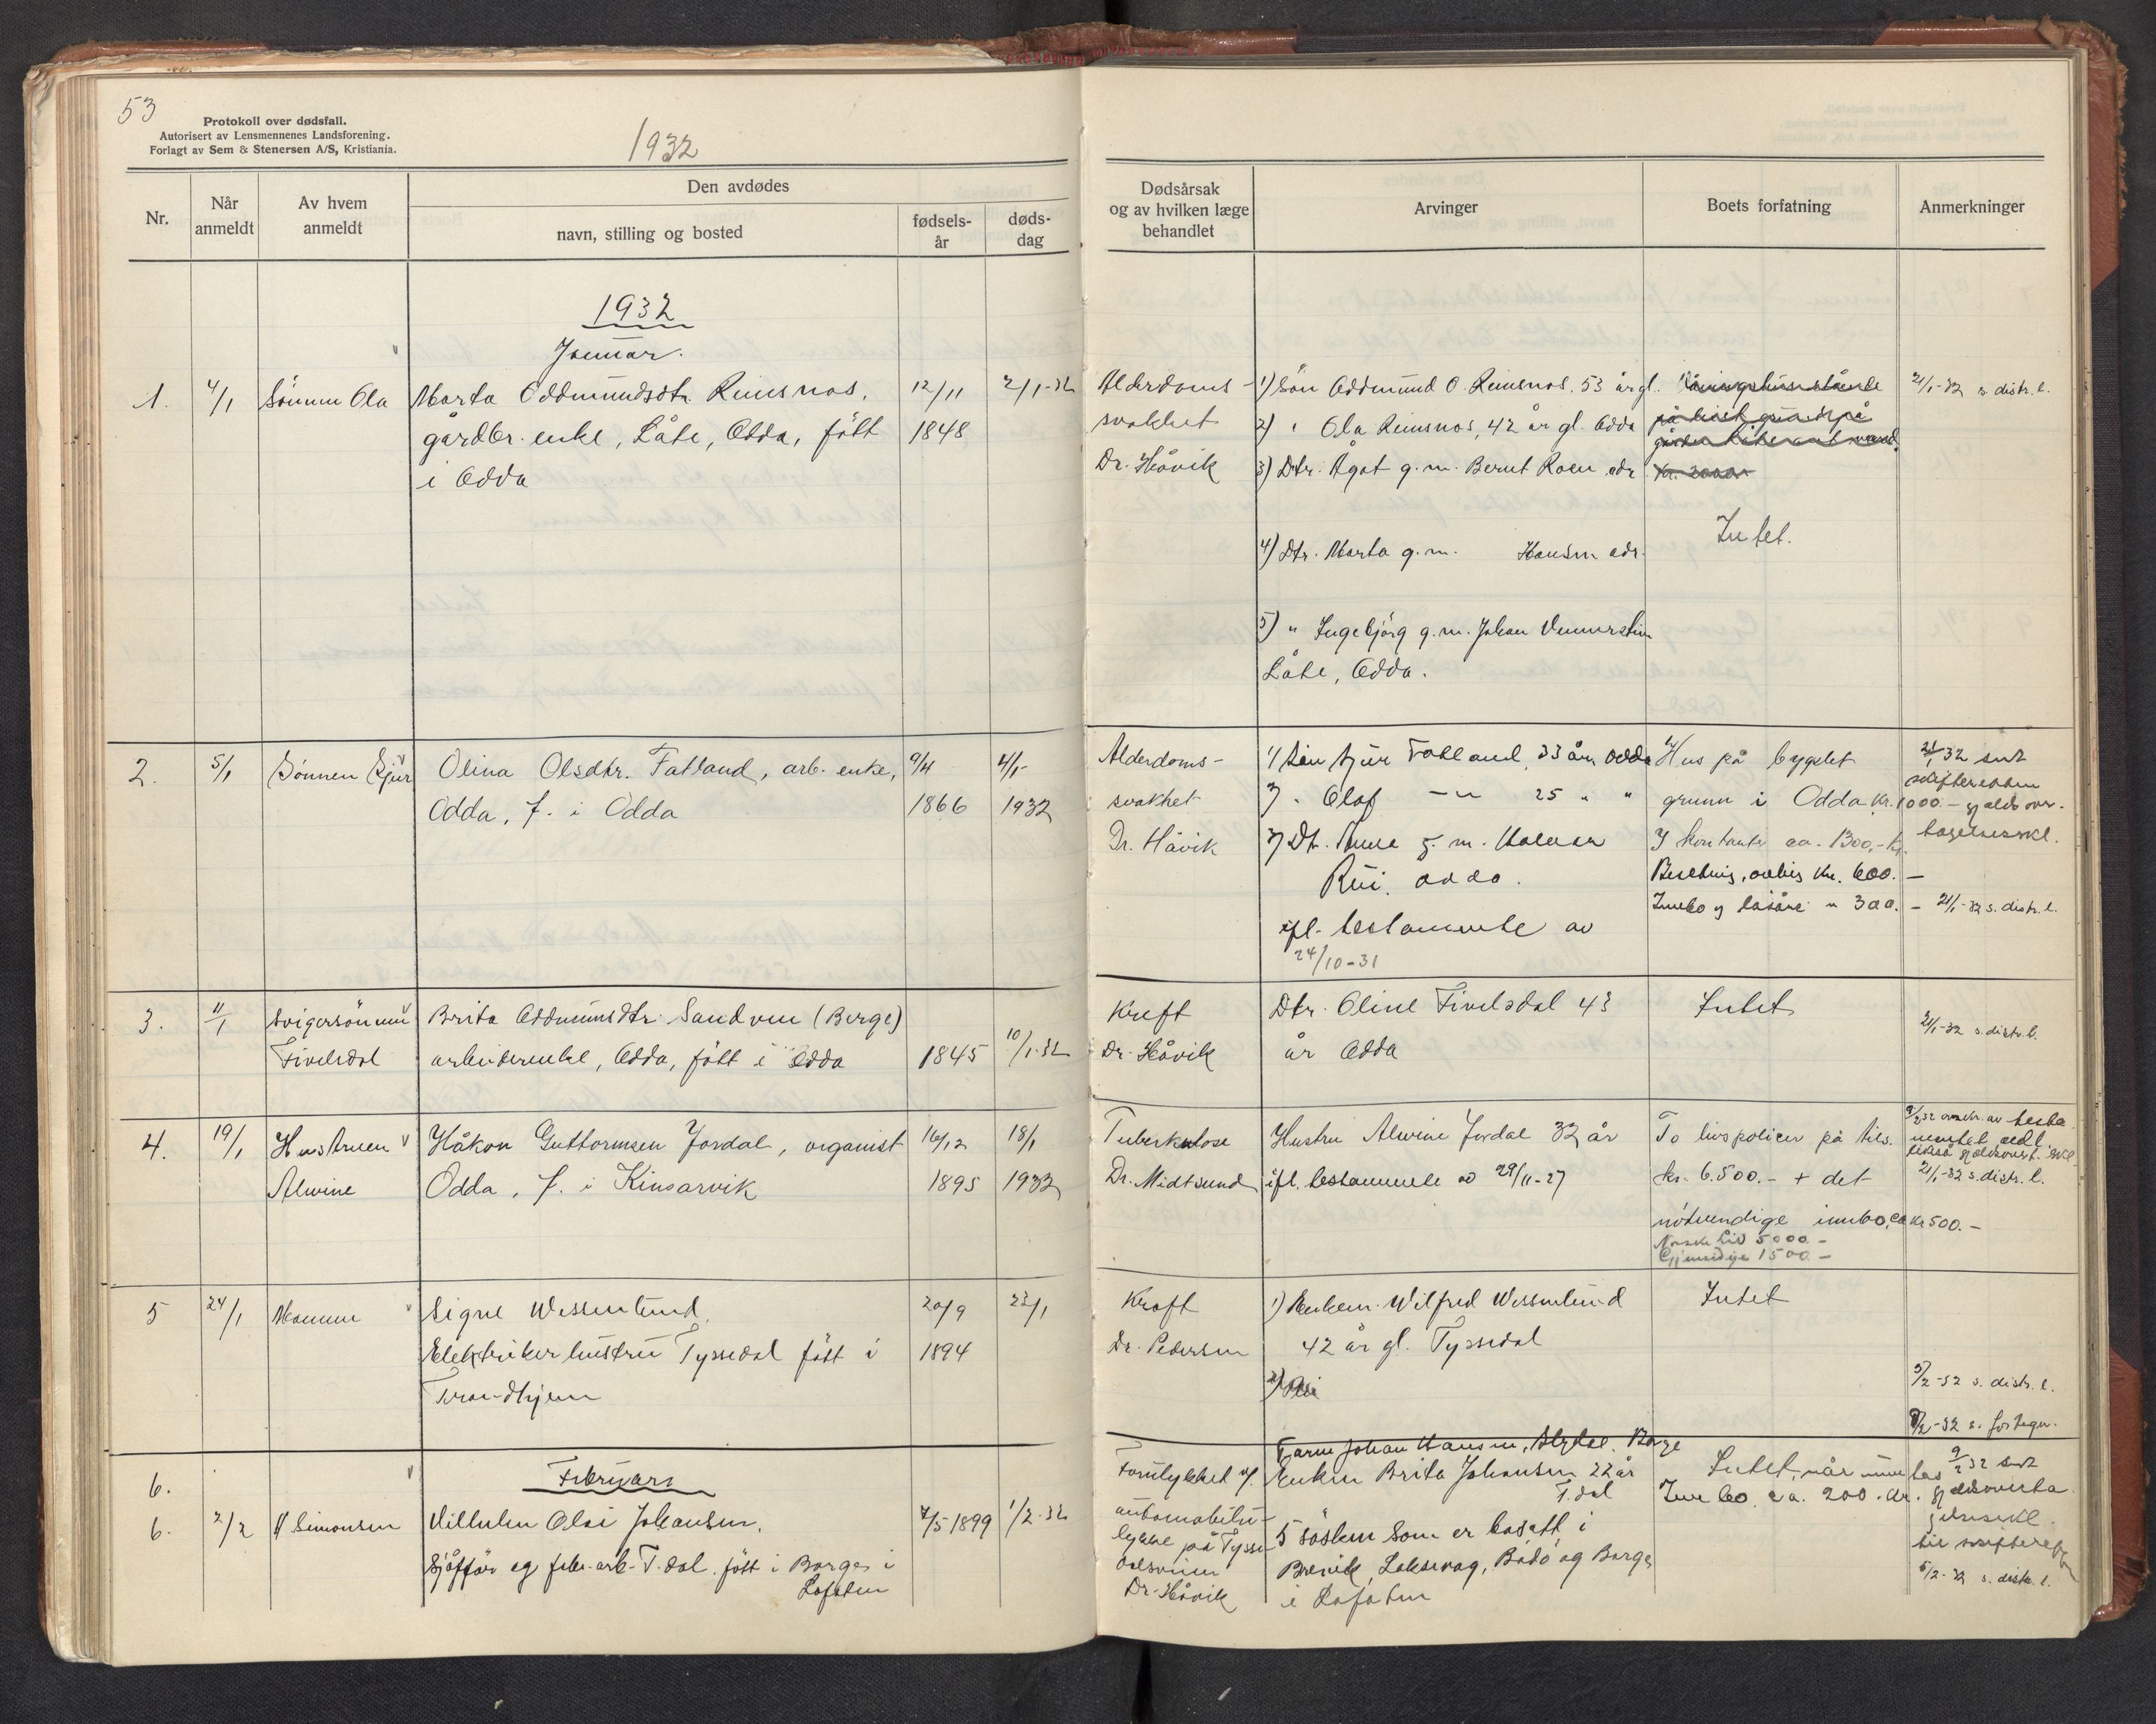 53
Protokoll over dødsfall.
Autorisert av Lensmennenes Landsforening.
Forlagt av Sem & Stenersen A/S, Kristiania.
1932
Nr.
Når
anmeldt
Av hvem
anmeldt
Den avdødes
navn, stilling og bosted
fødsels-
år
døds-
dag
Dødsårsak
og av hvilken læge
behandlet
Arvinger
Boets forfatning
Anmerkninger
1932
Januar.
1.
4/1
Sönnen Ola
Marta Oddmundsdtr Reinsnos,
gårdbr. enke, Låte, Odda, fött
i Odda
12/11
1848
2/1-32
Alderdoms-
svakhet
Dr. Håvik
1) Sön Oddmund O. Reinsnos. 53 år gl.
2) " Ola Reinsnos, 42 år gl. Odda
3) Dtr. Ågot g.m. Bernt Roen adr
4) Dtr. Marta g.m. Hansen adr.
5) " Ingebjörg g.m. Johan
Låte, Odda.
Intet.
21/1-32 s. distr. l.
2.
5/1
Sønnen Sjur
Olina Olsdtr. Fatland, arb. enke,
Odda, f. i Odda
9/4
1866
4/1-
1932
Alderdoms-
svakhet
Dr. Håvik
1) Søn Sjur Fatland, 33 år, Odda
2) " Olof -"- 25 " "
3) Dt. Anna g. m. Halvar
odda.
ifl. testamente av
24/10-31
1) Hus på bygslet
grunn i Odda kr. 1000.-
2) kontanter ca. 1300,- kr.
kr. 600.-
Innbo og løsøre " 300.-
21/1 32 sent
skifteretten
gjeldsover-
tagelseserkl.
21/1-32 s. distr. l.
3.
11/1
Svigersönnen
Fivelsdal
Brita Oddmunsdtr Sandven (Berge)
arbeiderenke, Odda, fött i Odda
1845
10/1-32
Kreft
Dr. Håvik
Dtr. Oline Fivelsdal 43
år Odda
Intet
21/1-32 s. distr. l.
4.
19/1
Hustruen
Alvine
Håkon Guttormsen Jordal, organist
Odda, f. i Kinsarvik
16/12
1895
18/1
1932
Tuberkulose
Dr. Midtsund
Hustru Alvine Jordal 32 år
ifl. testamente av 29/11-27
To livspoliser på tils.
kr. 6.500.- + det
nödvendige innbo, ca kr 500.-
Norske Liv 5000.-
Gjensidige 1500.-
21/1-32 s. distr. l.
5
24/1
Mannen
Signe Wessenlund.
Elektriker hustru Tyssedal fött i
Trondhjem
20/9
1894
23/1
Kreft
Dr. Pedersen
1) Enkem. Wilfred Wessenlund
42 år gl. Tyssedal
Intet
5/2-32 s. distr. l.
Februar
6.
6.
2/2
H Simonsen
Vilhelm Olai Johansen.
Sjåffør og fabr. arb. T.dal. fött i Borge i
Lofoten
7/5 1899
1/2-32
Forulykket v/
automobilu-
lykke på Tysse
dalsveien
Dr. Håvik
Farm Johan Hansen, Borge
Enken Brita Johansen 22 år
T.dal
5 søsken som er bosatt i
Brevik, Laksevåg, Bodö og Borge
i Lofoten
Intet, når unntas
Innbo. ca. 200. kr.
9/2 32 sent
gjeldsoverta
gelseserkl.
til skifteretten
5/2-32 s. distr. l.